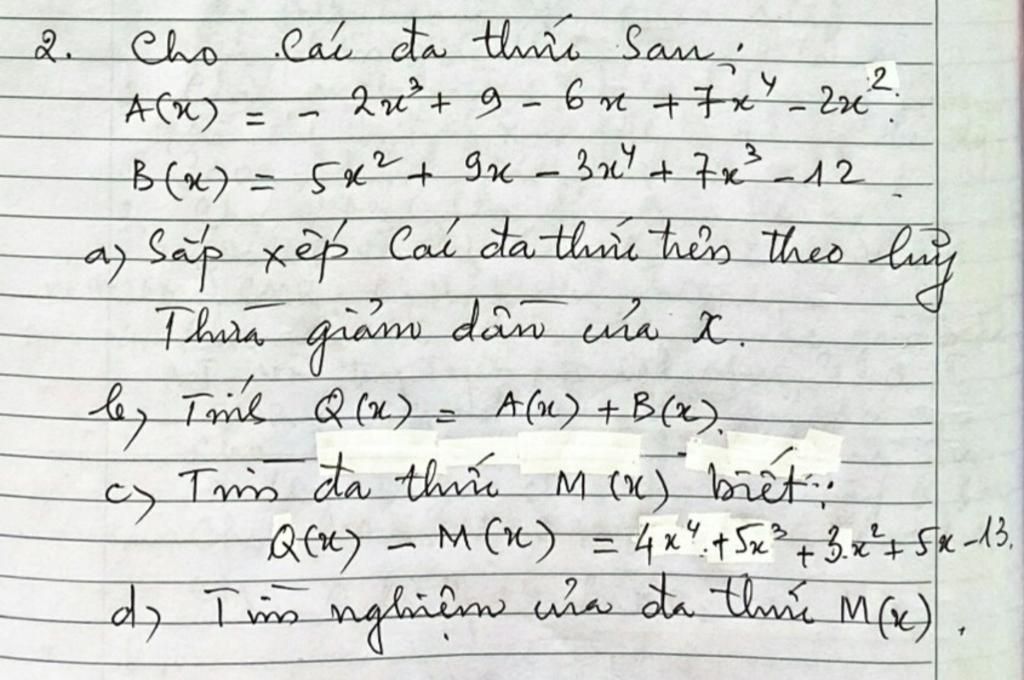 2. Cho các đa thức sau:
A(x) = - 2x³ + 9 - 6x + 7x⁴ - 2x².
B(x) = 5x² + 9x - 3x⁴ + 7x³ - 12.
a) Sắp xếp các đa thức trên theo luỹ
Thừa giảm dần của x.
b) Tính Q(x) = A(x) + B(x).
c) Tìm đa thức M(x) biết:
Q(x) - M(x) = 4x⁴ + 5x³ + 3.x² + 5x - 13.
d) Tìm nghiệm của đa thức M(x).